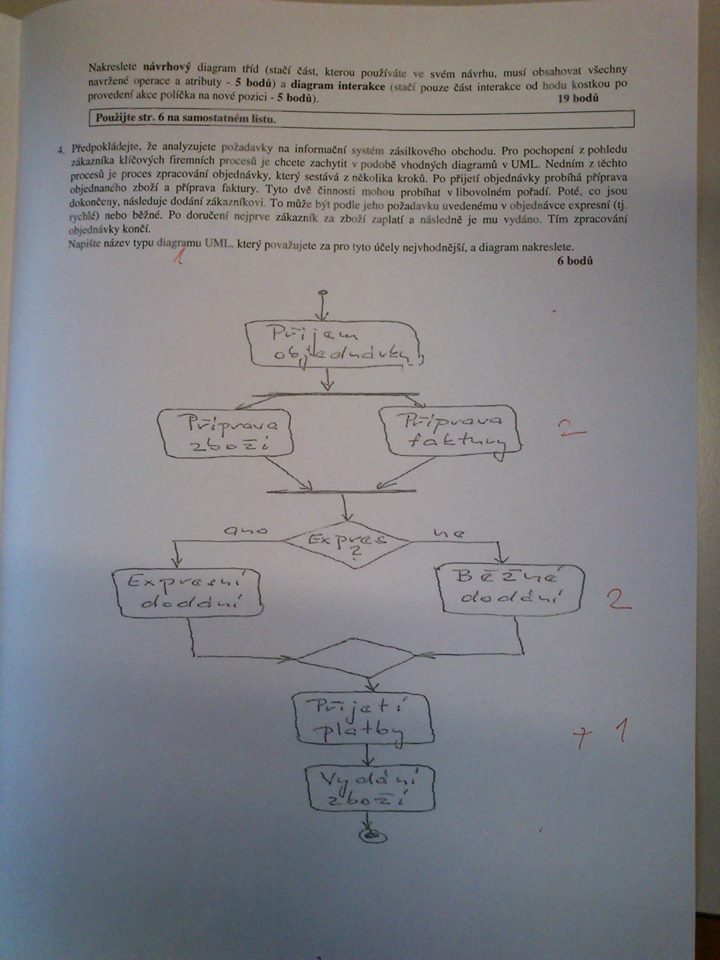 Nakreslete návrhový diagram tříd (stačí část, kterou používáte ve svém návrhu, musí obsahovat všechny
navržené operace a atributy - 5 bodů) a diagram interakce (stačí pouze část interakce od hodu kostkou po
provedení akce políčka na nové pozici - 5 bodů).
19 bodů
Použijte str. 6 na samostatném listu.
4. Předpokládejte, že analyzujete požadavky na informační systém zásilkového obchodu. Pro pochopení z pohledu
zákazníka klíčových firemních procesů je chcete zachytit v podobě vhodných diagramů v UML. Nedním z těchto
procesů je proces zpracování objednávky, který sestává z několika kroků. Po přijetí objednávky probíhá příprava
objednaného zboží a příprava faktury. Tyto dvě činnosti mohou probíhat v libovolném pořadí. Poté, co jsou
dokončeny, následuje dodání zákazníkovi. To může být podle jeho požadavku uvedenému v objednávce expresní (tj.
rychlé) nebo běžné. Po doručení nejprve zákazník za zboží zaplatí a následně je mu vydáno. Tím zpracování
objednávky končí.
Napište název typu diagramu UML, který považujete za pro tyto účely nejvhodnější, a diagram nakreslete.
1
6 bodů
Příjem
objednávky
Příprava
zboží
Příprava
faktury
2
Expres
?
ano
ne
Expresní
dodání
Běžné
dodání
2
Přijetí
platby
+ 1
Vydání
zboží